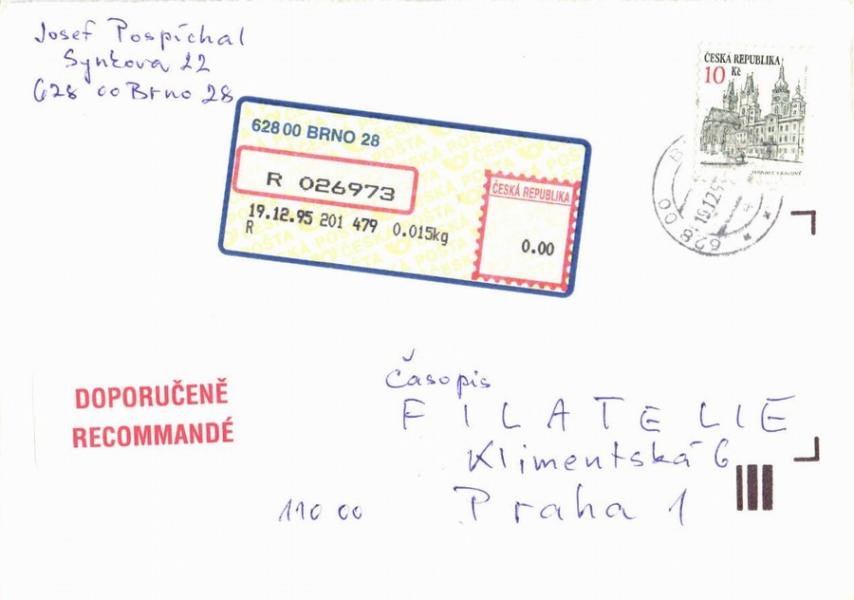 Josef Pospíchal
Synkova 22
628 00 Brno 28
ČESKÁ REPUBLIKA
10 Kč
628 00 BRNO 28
R 026973
19.12.95 201 479 0.015kg
R
ČESKÁ REPUBLIKA
0.00
628 00
19.12.9
DOPORUČENĚ
RECOMMANDÉ
Časopis
FILATELIE
Klimentská 6
110 00 Praha 1